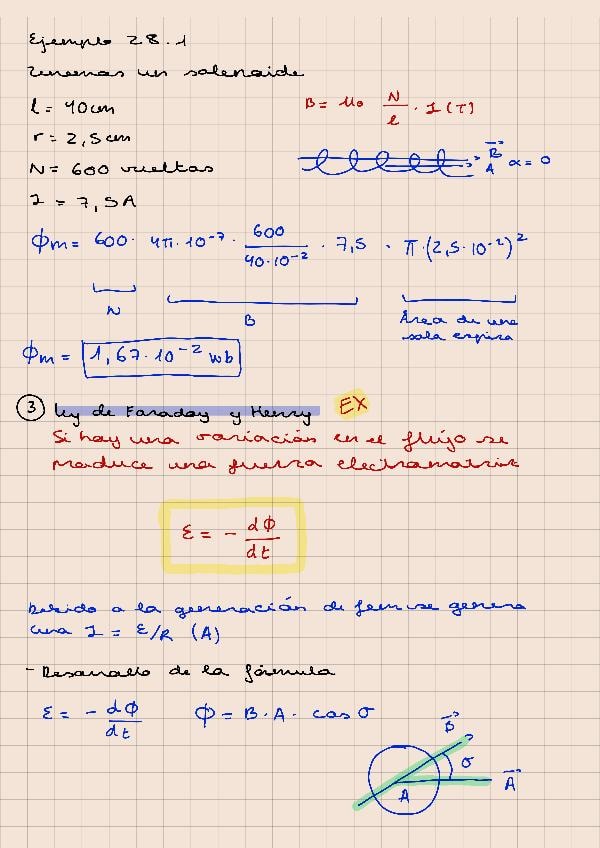 Ejemplo 28.1
Tenemos un solenoide
l = 40cm
r = 2,5cm
N = 600 vueltas
I = 7,5A
B = μ0 N/l · I (T)
B
A α = 0
Φm = 600 · 4π·10⁻⁷ · 600/40·10⁻² · 7,5 · π·(2,5·10⁻²)²
N
B
Área de una
sola espira
Φm = 1,67·10⁻² wb
③ ley de Faraday y Henry EX
Si hay una variación en el flujo se
produce una fuerza electromotriz
ε = - dΦ/dt
Debido a la generación de fem se genera
una I = ε/R (A)
- Desarrollo de la fórmula
ε = - dΦ/dt Φ = B·A· cos σ
B
σ
A
A